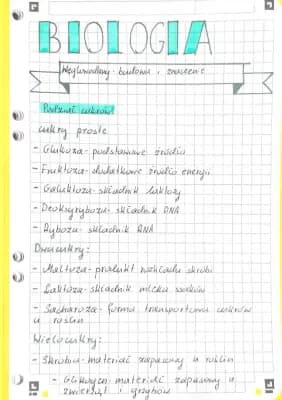 BIOLOGIA
Węglowodany - budowa i znaczenie
Podział cukrów
cukry proste
- Glukoza - podstawowe źródło
- Fruktoza - dodatkowe źródło energii
- Galaktoza - składnik laktozy
- Deoksyryboza - składnik DNA
- Ryboza - składnik RNA
Dwucukry:
- Maltoza - produkt rozkładu skrobi
- Laktoza - składnik mleka ssaków
- Sacharoza - forma transportowa cukrów
u roślin
Wielocukry:
- Skrobia - materiał zapasowy u roślin
- Glikogen - materiał zapasowy u
zwierząt i grzybów